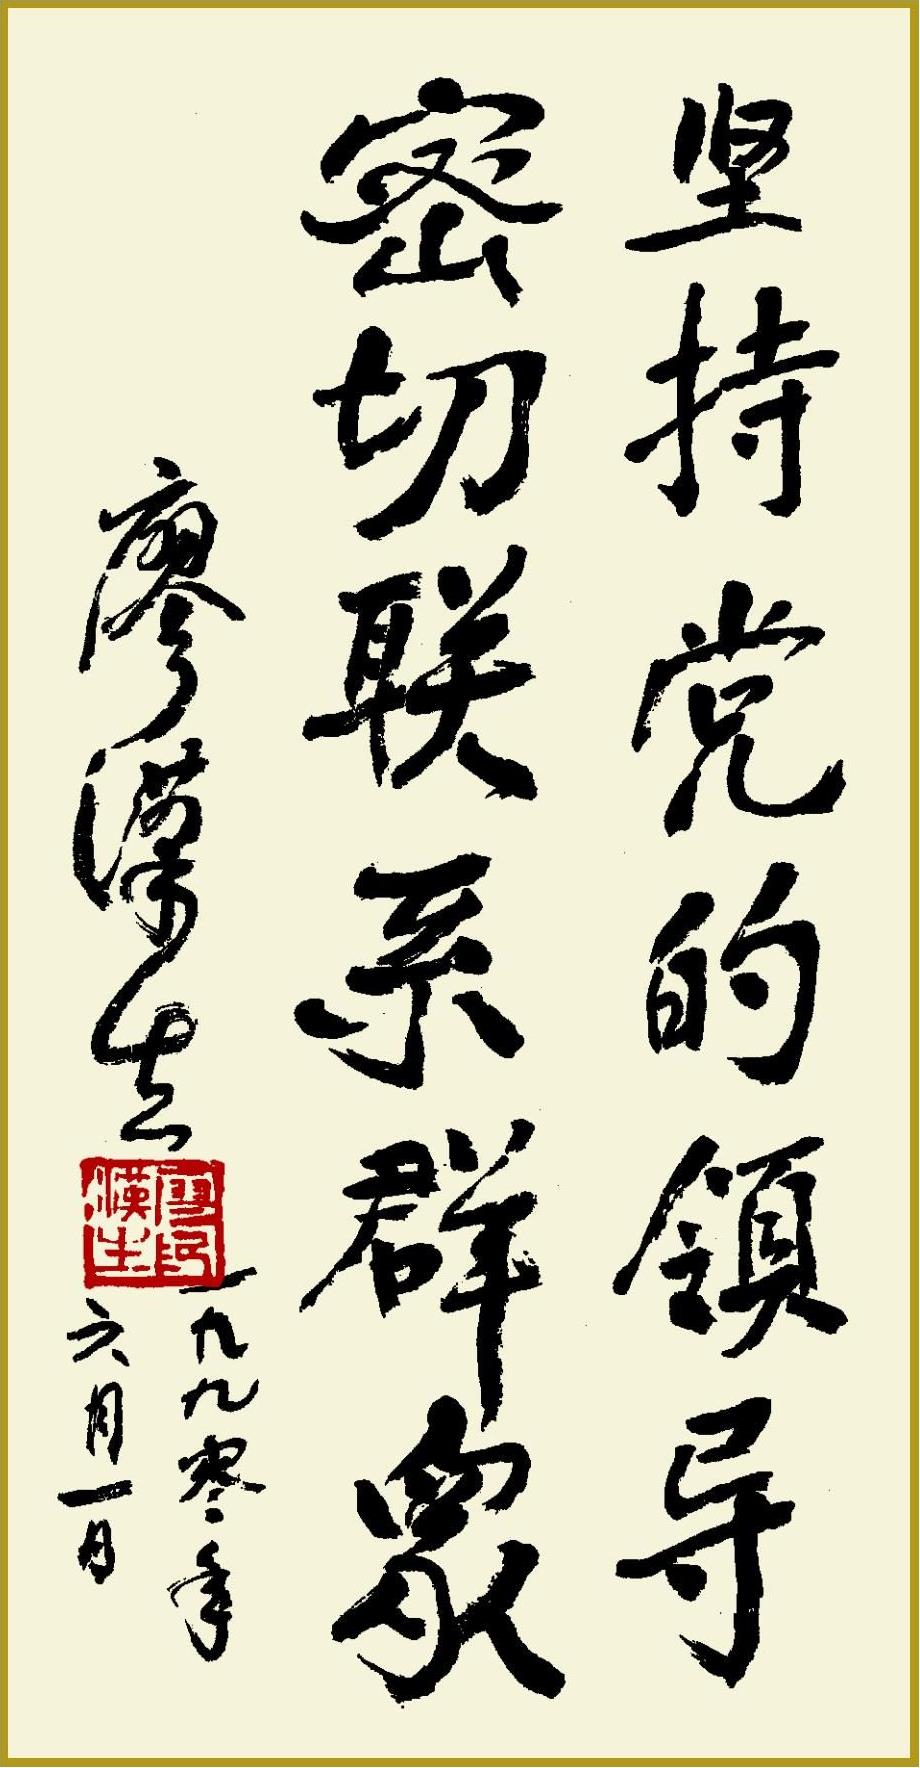 坚持党的領导
密切联系群眾
廖漢生
廖漢生印
一九九零年
六月一日